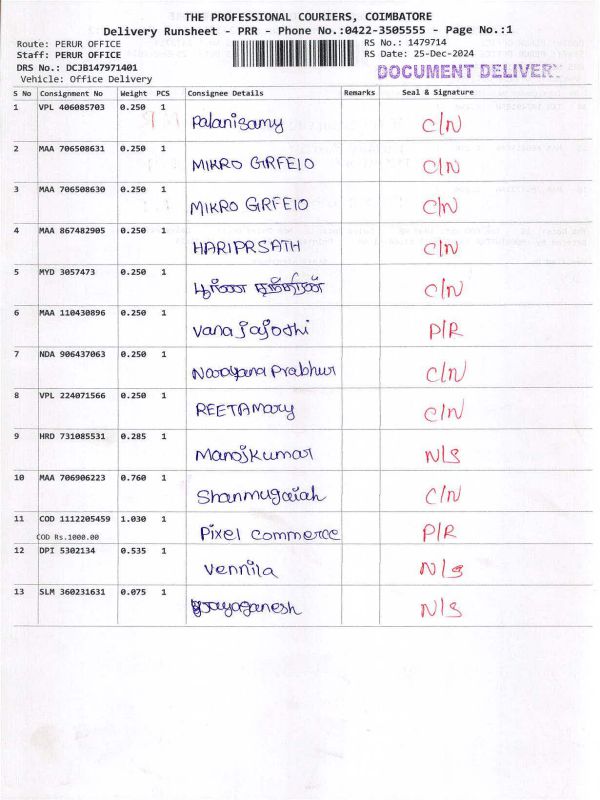 THE PROFESSIONAL COURIERS, COIMBATORE
Delivery Runsheet - PRR - Phone No.:0422-3505555 - Page No.:1
Route: PERUR OFFICE RS No.: 1479714
Staff: PERUR OFFICE RS Date: 25-Dec-2024
DRS No.: DCJB147971401 DOCUMENT DELIVERY
Vehicle: Office Delivery
S No Consignment No Weight PCS Consignee Details Remarks Seal & Signature
1 VPL 406085703 0.250 1 Palanisamy C/N
2 MAA 706508631 0.250 1 MIKRO GRFEIO C/N
3 MAA 706508630 0.250 1 MIKRO GRFEIO C/N
4 MAA 867482905 0.250 1 HARIPRSATH C/N
5 MYD 3057473 0.250 1 C/N
6 MAA 110430896 0.250 1 Vanajajothi P/R
7 NDA 906437063 0.250 1 Narayana Prabhur C/N
8 VPL 224071566 0.250 1 REETAMary C/N
9 HRD 731085531 0.285 1 Manojkumar N/S
10 MAA 706906223 0.760 1 Shanmugaiah C/N
11 COD 1112205459 1.030 1 Pixel commerce P/R
COD Rs.1000.00
12 DPI 5302134 0.535 1 Vennila N/S
13 SLM 360231631 0.075 1 Jayaganesh N/S